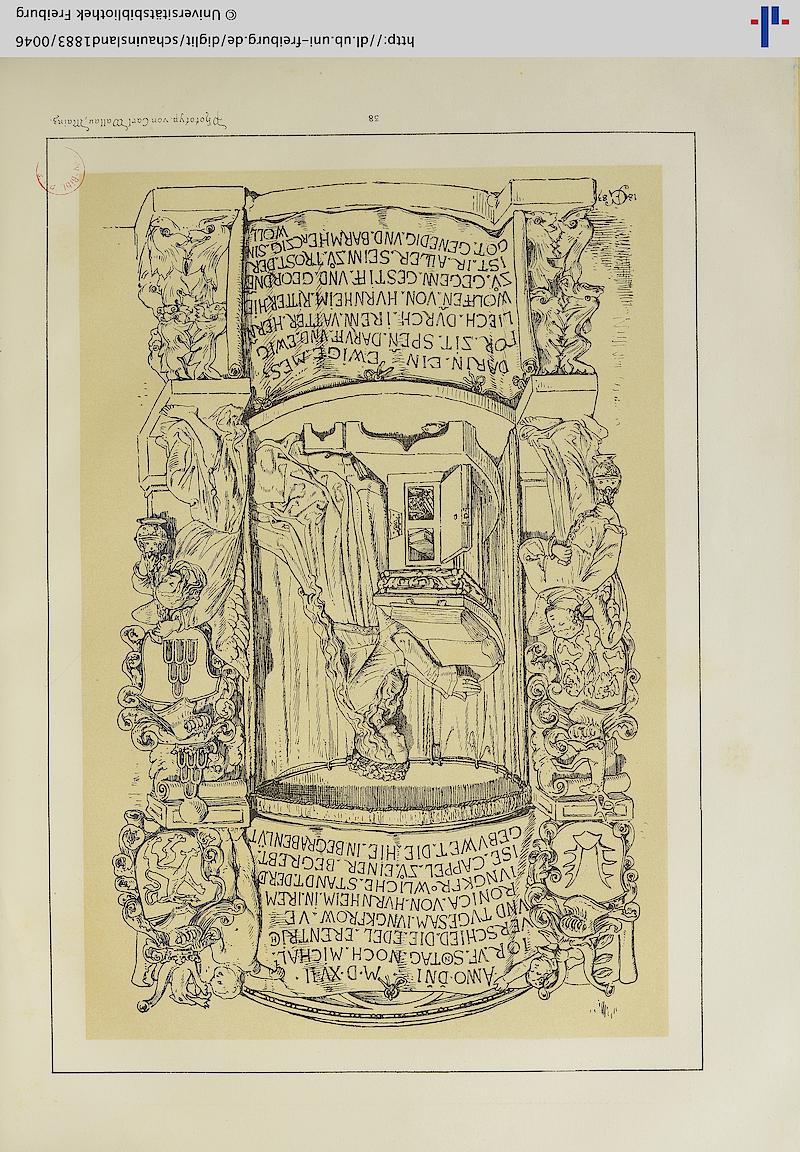 ANNO·DÑI M·D·XVII·
IOR·VF·SOTAG·NOCH·MICHAL·
VERSCHIED·DIE·EDEL·ERENTRIC
VND TVGESAM·IVNGKFROW·VE
RONICA·VON·HVRNHEIM·IN·IREM
IVNGKFROWLICHE·STANDT·DERD
ISE·CAPPEL·ZV·EINER·BEGREBT·
GEBVWET·DIE·HIE·IN·BEGRABEN LYT
DARIN·EIN·EWIGE·MES
FOR·ZIT·SPEN·DARVF·VND·EWIG
LIECH·DVRCH·IREN·VATTER·HERN
WOLFFEN·VON·HVRNHEIM·RITTER·HIE
ZV·GEGEN·GESTIFF·VND·GEORDNE
IST·IR·ALLER·SEIN·ZV·TROST·DER
GOT·GENEDIG·VND·BARMHERCZIG·SIN
WOLL
38
Phototyp. von Carl Wallau, Mainz.
http://dl.ub.uni-freiburg.de/diglit/schauinsland1883/0046
© Universitätsbibliothek Freiburg